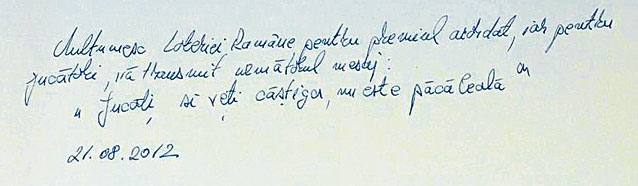 Mulțumesc Loteriei Române, pentru premiul acordat, iar pentru
jucători, vă transmit următorul mesaj:
„ Jucați, si veți câștiga, nu este păcăleală "
21.08.2012